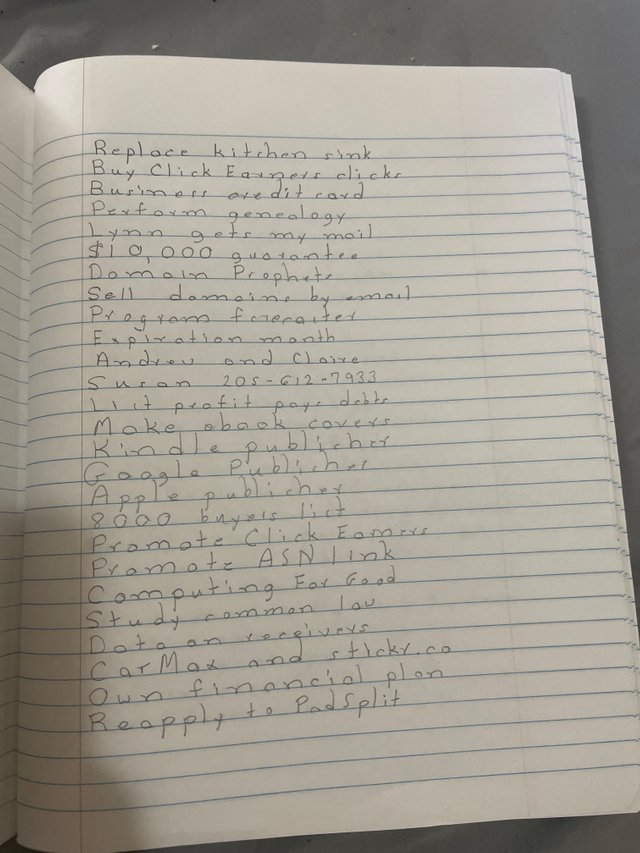 Replace kitchen sink
Buy Click Earners clicks
Business credit card
Perform genealogy
Lynn gets my mail
$10,000 guarantee
Domain Prophets
Sell domains by email
Program forecaster
Expiration month
Andrew and Claire
Susan 205-612-7933
List profit pays debts
Make ebook covers
Kindle publisher
Google Publisher
Apple publisher
8000 buyers list
Promote Click Earners
Promote ASN link
Computing For Good
Study common law
Data on receivers
CarMax and stickr.co
Own financial plan
Reapply to PadSplit